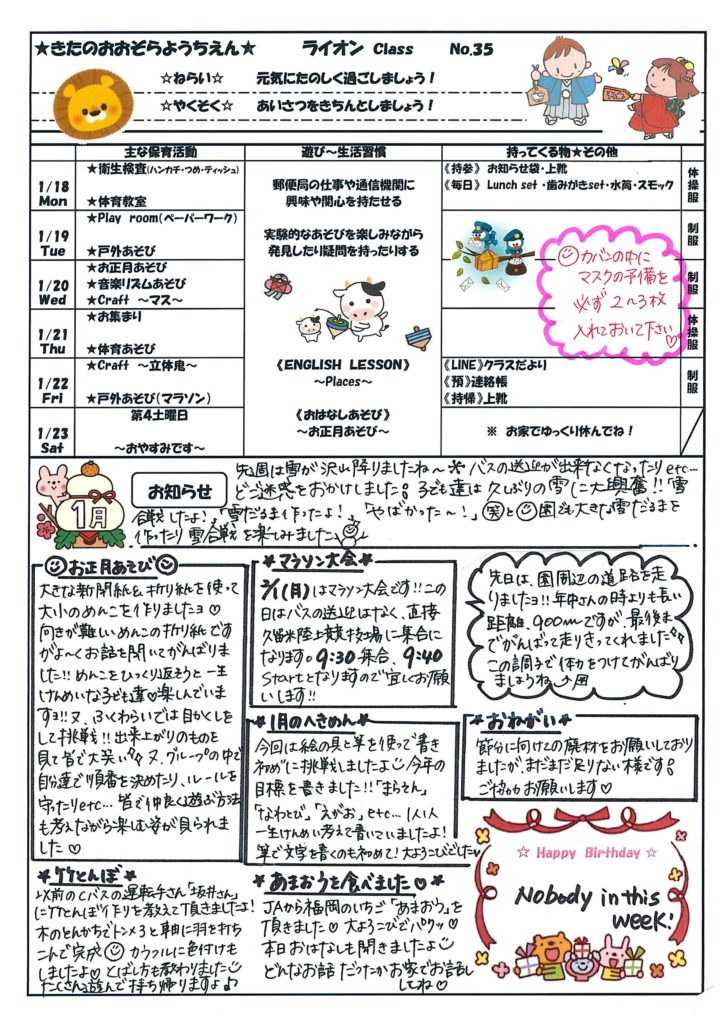 ★きたのおおぞらようちえん★ ライオン Class No.35
☆ねらい☆ 元気にたのしく過ごしましょう！
☆やくそく☆ あいさつをきちんとしましょう！
主な保育活動 遊び～生活習慣 持ってくる物★その他
1/18 Mon
★衛生検査(ハンカチ・つめ・ティッシュ)
★体育教室
郵便局の仕事や通信機関に
興味や関心を持たせる
《持参》 お知らせ袋・上靴
《毎日》 Lunch set ・歯みがきset・水筒・スモック
体操服
1/19 Tue
★Play room(ペーパーワーク)
★戸外あそび
実験的なあそびを楽しみながら
発見したり疑問を持ったりする
制服
1/20 Wed
★お正月あそび
★音楽リズムあそび
★Craft ～マス～
制服
カバンの中に
マスクの予備を
必ず 2～3枚
入れておいて下さい♡
1/21 Thu
★お集まり
★体育あそび
体操服
1/22 Fri
★Craft ～立体鬼～
★戸外あそび(マラソン)
《ENGLISH LESSON》
～Places～
《LINE》クラスだより
《預》連絡帳
《持帰》上靴
制服
1/23 Sat
第4土曜日
～おやすみです～
《おはなしあそび》
～お正月あそび～
※ お家でゆっくり休んでね！
1月
お知らせ
先週は雪が沢山降りましたね～＊ バスの送迎が出来なくなったりetc…
ご迷惑をおかけしました。子ども達は久しぶりの雪に大興奮!!「雪
合戦したよ！」「雪だるま作ったよ！」「やばかった～！」笑と園でも大きな雪だるまを
作ったり雪合戦を楽しみました
お正月あそび
大きな新聞紙&折り紙を使って
大小のめんこを作りましたヨ♡
向きが難しいめんこの折り紙です
がよ～くお話を聞いてがんばりま
した!! めんこをひっくり返そうと一生
けんめいな子ども達♡楽しんでいま
すヨ!! 又、ふくわらいでは目かくしを
して挑戦!! 出来上がりのものを
見て皆で大笑い 又、グループの中で
自分達で順番を決めたり、ルールを
守ったりetc… 皆で仲良く遊ぶ方法
も考えながら楽しむ姿が見られま
した♡
★マラソン大会★
2/1(月)はマラソン大会です!! この
日はバスの送迎はなく、直接
久留米陸上競技場に集合に
なります。9:30集合、9:40
Startとなりますので宜しくお願
いします!!
先日は、園周辺の道路を走
りましたヨ!! 年中さんの時よりも長い
距離、900mですが、最後ま
でがんばって走りきってくれました
この調子で体力をつけてがんばり
ましょうね
★1月のへきめん★
今回は絵の具と筆を使って"書き
初め"に挑戦しましたよ 今年の
目標を書きました!!「まらそん」
「なわとび」「えがお」etc… 1人1人
一生けんめい考えて書いていましたよ！
筆で文字を書くのも初めて！大よろこびでした
★おねがい★
節分に向けての廃材をお願いしており
ましたが、まだまだ足りない様です。
ご協力お願いします♡
★竹とんぼ★
以前のCバスの運転手さん「坂井さん」
に竹とんぼ作りを教えて頂きましたよ！
木のとんかちでトントンと車軸に羽を打ち
こんで完成 カラフルに色付けも
しましたよ♡ とばし方も教わりました
たくさん遊んで持ち帰りますよ♪
★あまおうを食べました♡★
JAから福岡のいちご「あまおう」を
頂きました♡ 大よろこびでパクッ♡
本日おはなしも聞きましたよ
どんなお話だったかお家でお話し
してね♡
☆ Happy Birthday ☆
Nobody in this
week!